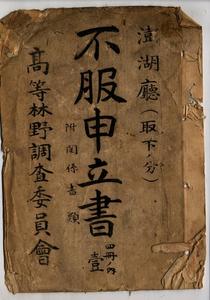 澎湖廳（取下ノ分）
不服申立書
附関係書類
四冊ノ内
壹
高等林野調査委員會